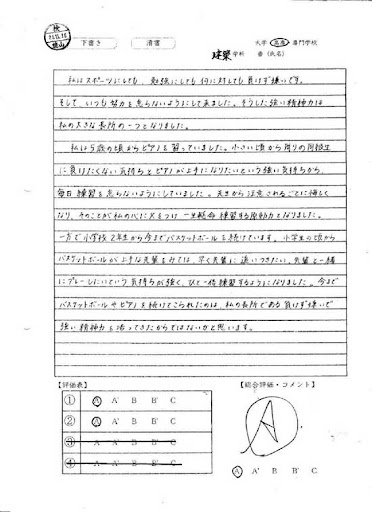 検
横山
下書き
清書
大学 高専 専門学校
建築学科 番(氏名)
私はスポーツにしても、勉強にしても何に対しても負けず嫌いです。
そして、いつも努力を怠らないようにして来ました。そうした強い精神力は
私の大きな長所の一つとなりました。
私は5歳の頃からピアノを習っていました。小さい頃から周りの同級生
に負けたくない気持ちとピアノが上手になりたいという強い気持ちから、
毎日練習を怠らないようにしていました。先生から注意されるごとに悔しく
なり、そのことが私の心に火をつけ一生懸命練習する原動力となりました。
一方で小学校2年生から今までバスケットボールを続けています。小学生の頃から
バスケットボールが上手な先輩をみては、早く先輩に追いつきたい、先輩と一緒
にプレーしたいという気持ちが強く、ひと一倍練習するようになりました。今まで
バスケットボールやピアノを続けてこられたのは、私の長所である負けず嫌いで
強い精神力を培ってきたからではないかと思います。
【評価表】
【総合評価・コメント】
① A A' B B' C
② A A' B B' C
③ A A' B B' C
④ A A' B B' C
A
A A' B B' C